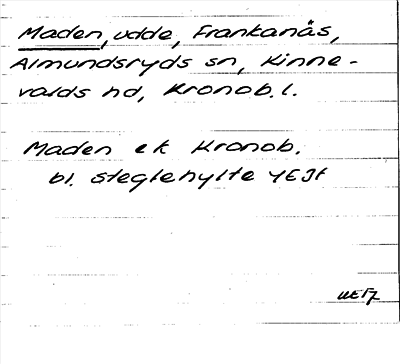 Maden, udde, Frankanäs,
Almundsryds sn, Kinne-
valds hd, Kronob. l.
Maden ek Kronob.
bl. Steglehylte